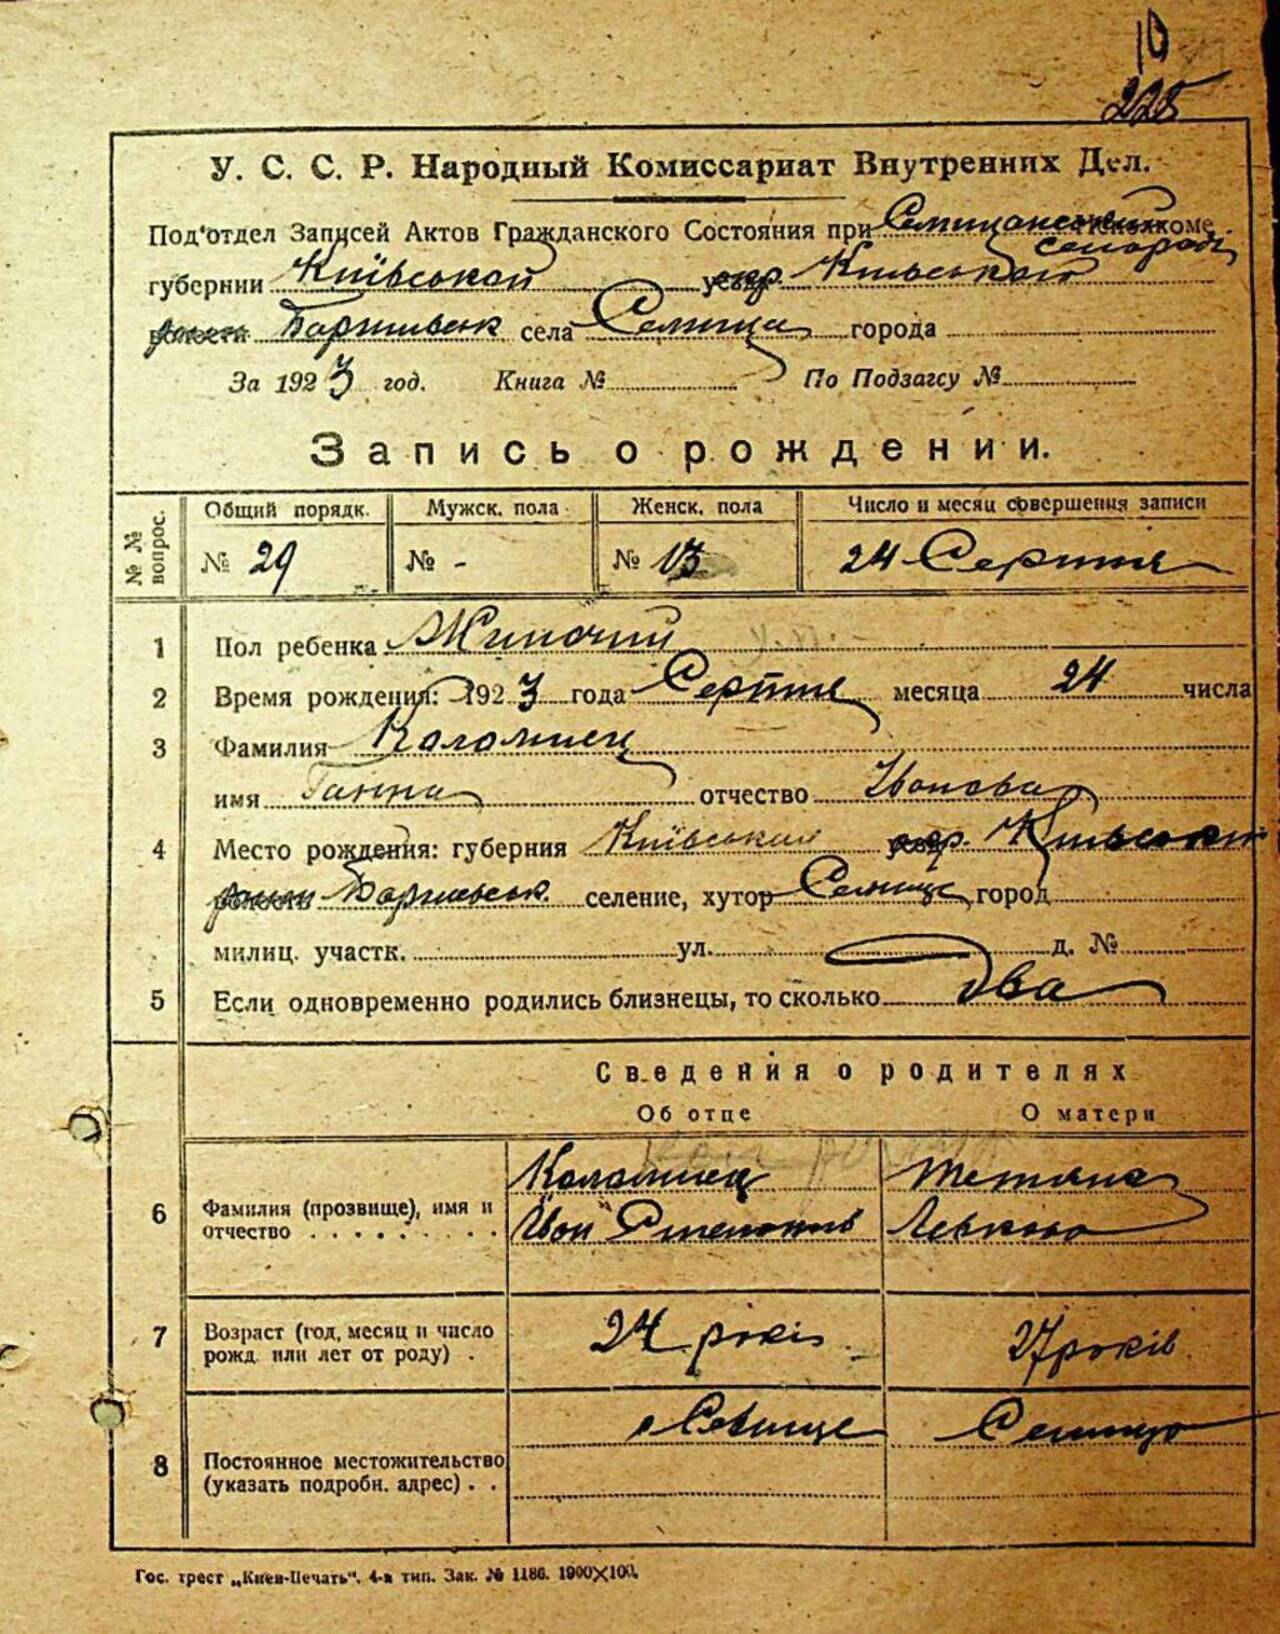 10
225
У. С. С. Р. Народный Комиссариат Внутренних Дел.
Под'отдел Записей Актов Гражданского Состояния при
губернии Київської окр. Київської
села города
За 1923 год. Книга № По Подзагсу №
Запись о рождении.
№№ вопрос. Общий порядк. Мужск. пола Женск. пола Число и месяц совершения записи
№ 29 № - № 13 24 Серпня
1 Пол ребенка Жиночий
2 Время рождения: 1923 года Серпня месяца 24 числа
3 Фамилия Коломиец
имя Ганна отчество Ивонова
4 Место рождения: губерния Київської окр.
селение, хутор город
милиц. участк. ул. д. №
5 Если одновременно родились близнецы, то сколько Два
Сведения о родителях
Об отце О матери
Коломиец Тетяна
6 Фамилия (прозвище), имя и
отчество . . . . . . . . . Ивон Степонов Левкова
7 Возраст (год, месяц и число
рожд. или лет от роду) . 24 рокі 27 років
8 Постоянное местожительство
(указать подробн. адрес) . .
Гос. трест „Киев-Печать“. 4-я тип. Зак. № 1186. 1900×100.